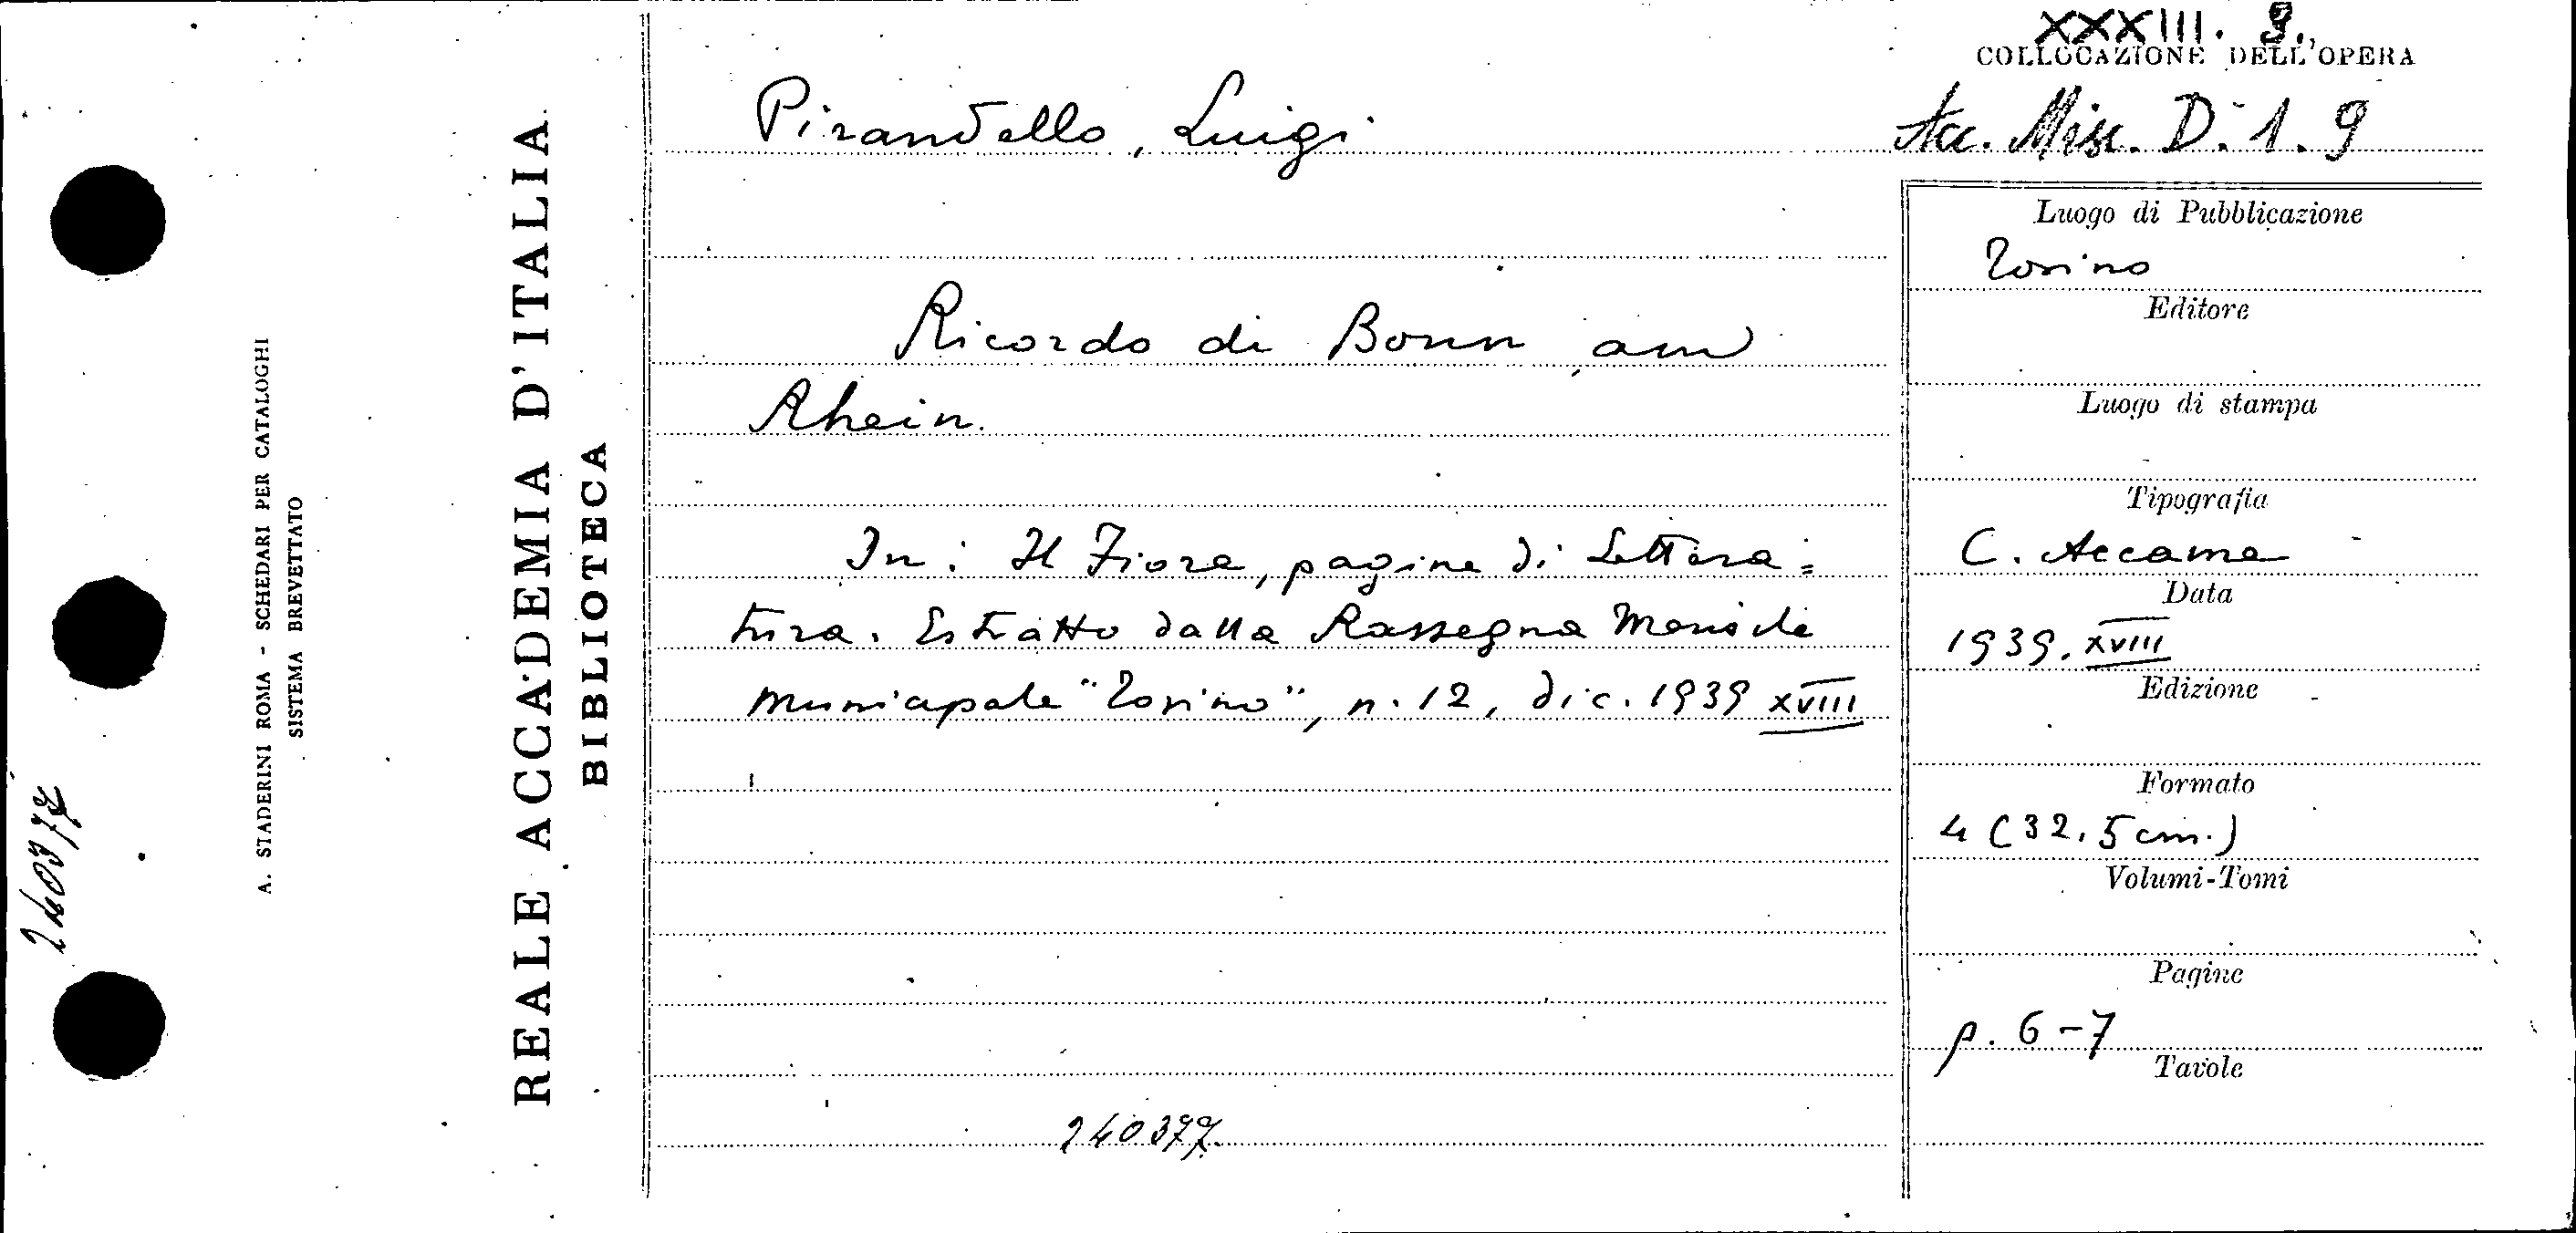 XXXIII. 9.
COLLOCAZIONE DELL'OPERA
Pirandello, Luigi
Acc. Misc. D. 1. 9
Ricordo di Bonn am
Rhein.
In: Il Fiore, pagine di Lettera=
tura. Estratto dalla Rassegna Mensile
municipale "Torino", n. 12, dic. 1939 XVIII
240377
Luogo di Pubblicazione
Torino
Editore
Luogo di stampa
Tipografia
C. Accame
Data
1939. XVIII
Edizione
Formato
4 (32,5 cm.)
Volumi-Tomi
Pagine
p. 6-7
Tavole
REALE ACCADEMIA D'ITALIA
BIBLIOTECA
A. STADERINI ROMA - SCHEDARI PER CATALOGHI
SISTEMA BREVETTATO
240377